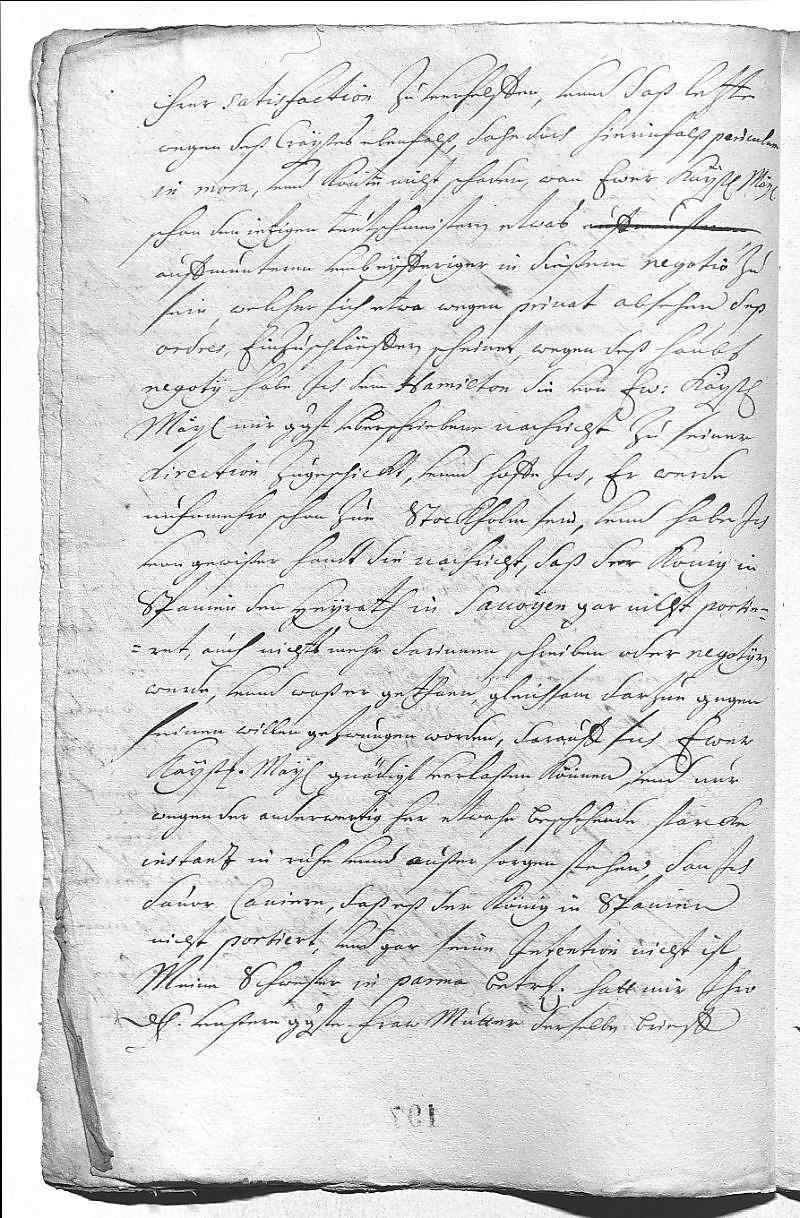 ihrer satisfaction zu verhelffen, vnnd daß letzte
wegen deß Crayßes ebenfalß, dahe doch hierinfalß periculum
in mora, vnnd könte nicht schaden, wan Ewer Kaÿsl Maÿl
schon den ietzigen teutschmeistern etwas
auffmuntern vmb eÿfferiger in dießem negotio zu
sein, welcher sich etwa wegen privat absehen deß
ordres, einzuschläffen scheinet, wegen deß haubt
negotÿ habe Ich dem Hamilton die von Ew: Kaÿsl
Maÿl mir ggst uberschriebene nachricht zu seiner
direction zugeschickt, vnnd hoffe Ich, Er werde
nuhnmehr schon zue Stockholm sein, vnnd habe Ich
von gewißer handt die nachricht, daß der König in
Spanien den heyrath in Sauoÿen gar nicht portie=
=ret, auch nichts mehr darinnen schreiben oder negotÿren
werde, vnnd waß er gethaen, gleichsam darzue gegen
seinen willen gezwungen worden, darauff sich Ewer
Kaÿsl. Maÿl gnädigst verlaßen können, vnnd nur
wegen der anderwertig her etwahn beschehende starcke
instantz in ruhe vnnd außer sorgen stehen, dan Ich
dauor Caviere, daß eß der König in Spanien
nicht portiert, vnd gar seine Intention nicht ist,
Meine Schwester in parma betrf. hatt mir Ihro
Mt. vnßere ggste fraw Mutter derselben brieff
197